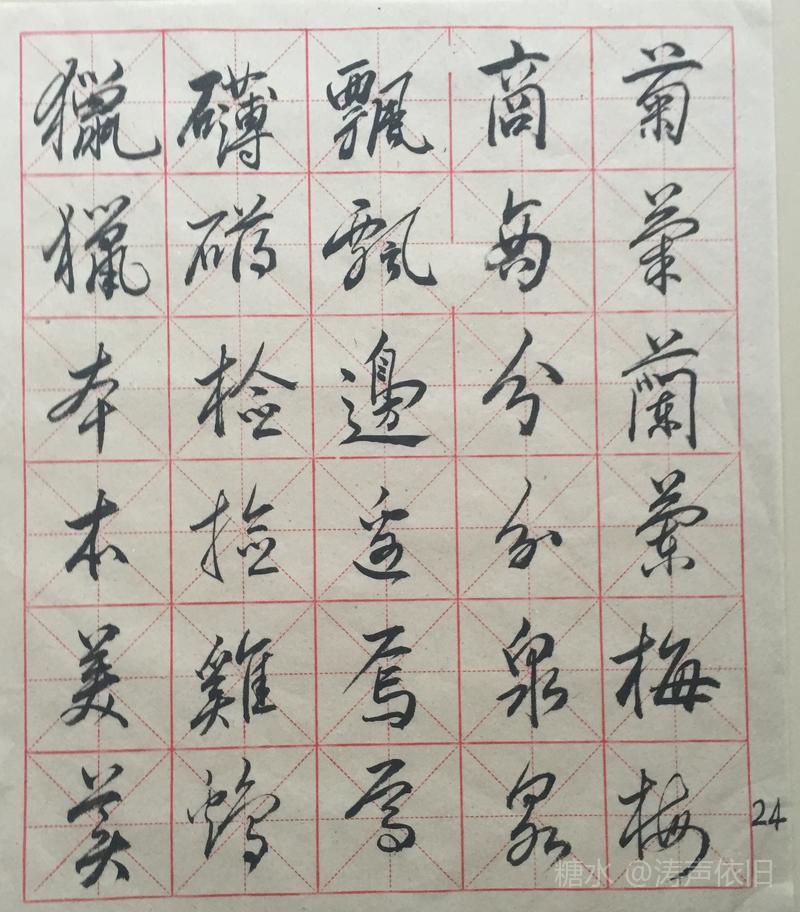 菊菊蘭蘭梅梅
商商分分泉泉
飄飄邊邊焉焉
礴礴检检雞鷄
獵獵本本美美
24
糖水 @涛声依旧